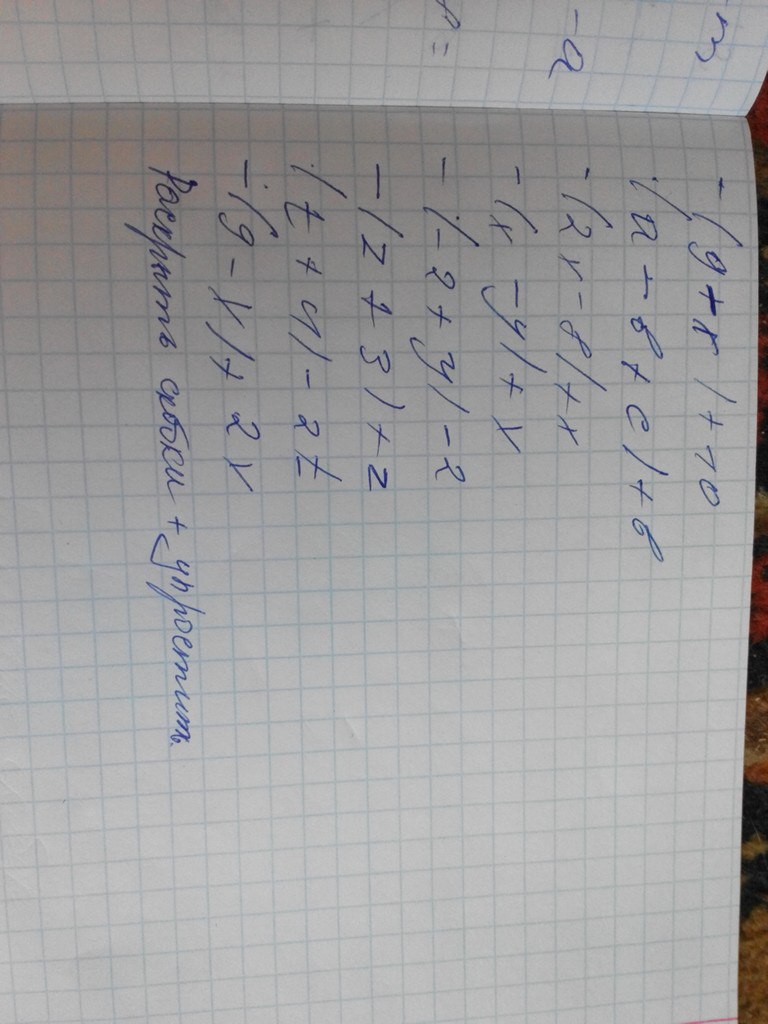 -m
-a
=
-(9+x)+10
(a-в+c)+в
-(2x-8)+x
-(x-y)+x
-(-2+y)-2
-(z+3)+z
(t+4)-2t
-(9-x)+2x
Раскрыть скобки + упростить.